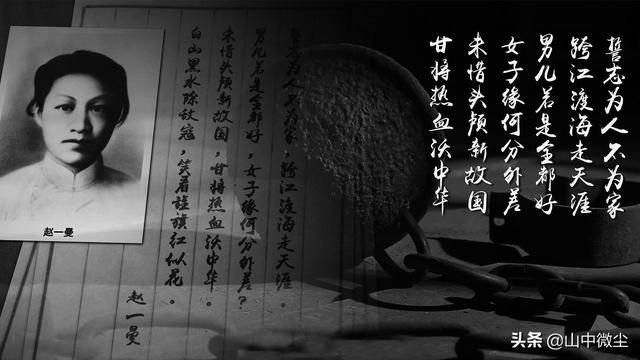 誓志为人不为家
跨江渡海走天涯
男儿若是全都好
女子缘何分外差
未惜头颅新故国
甘将热血沃中华
誓志为人不为家，跨江渡海走天涯。
男儿若是全都好，女子缘何分外差？
未惜头颅新故国，甘将热血沃中华。
白山黑水除敌寇，笑看旌旗红似花。
赵一曼
赵一曼
头条 @山中微尘